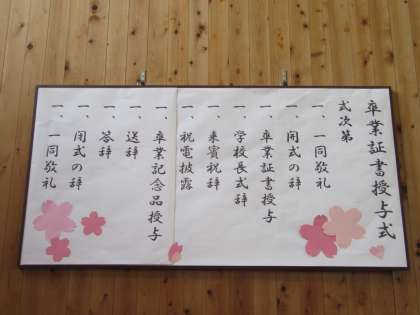 卒業証書授与式
式次第
一、一同敬礼
一、開式の辞
一、卒業証書授与
一、学校長式辞
一、来賓祝辞
一、祝電披露
一、卒業記念品授与
一、送辞
一、答辞
一、閉式の辞
一、一同敬礼